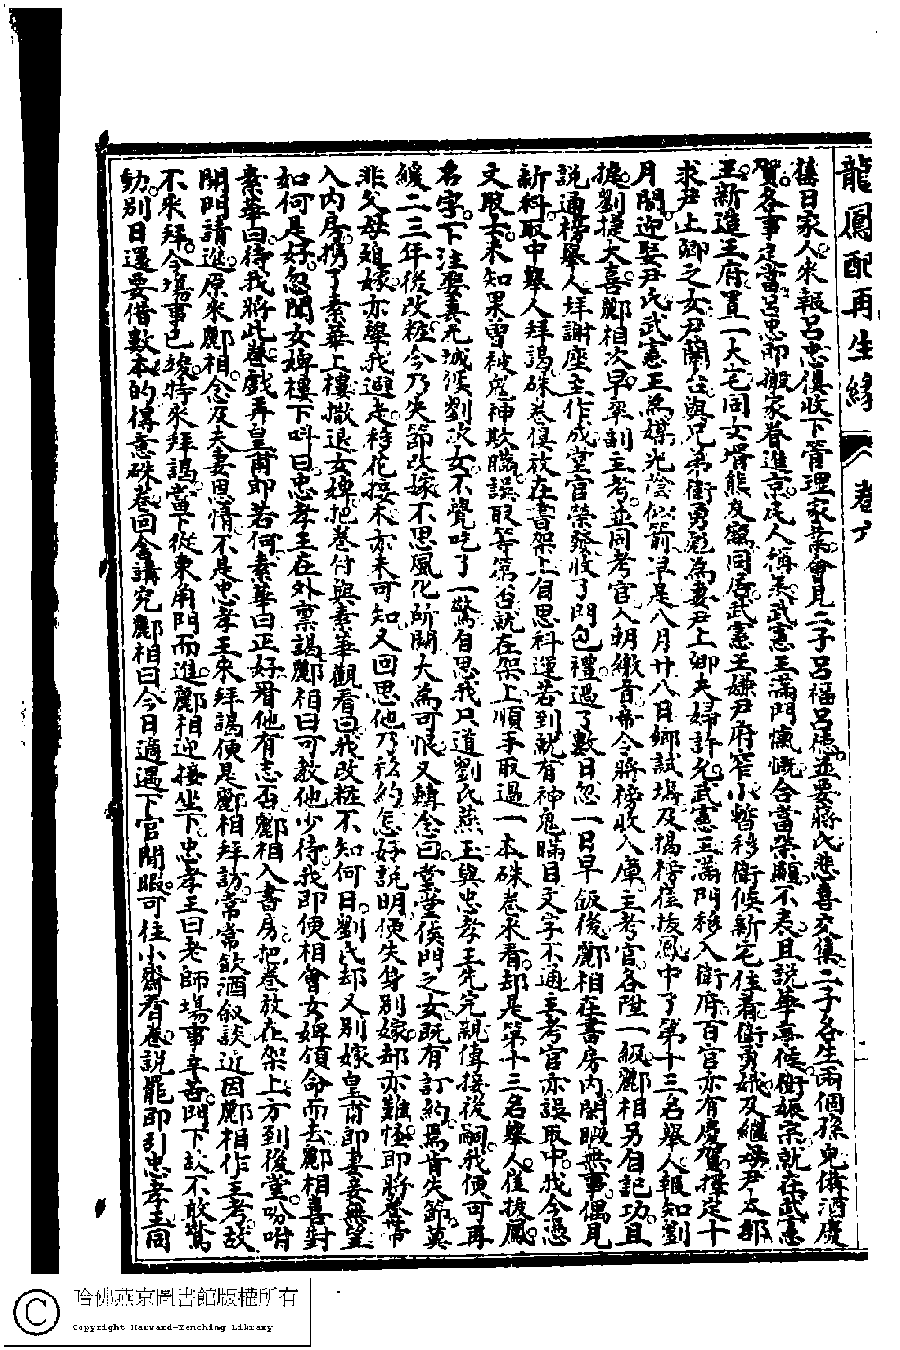 龍鳳配再生緣 卷六
舊日家人來報呂忠復收下管理家業會見二子呂福呂德並要蔣氏悲喜交集二子各生兩個孫兒備酒慶
賀各事定當呂忠即搬家眷進京民人稱羨武憲王滿門慷慨合當榮顯不表且說華亭侯衛振宗就在武憲
王新造王府買一大宅同女婿熊友鶴同居武憲王嫌尹府窄小暫移衛候新宅住着衛勇娥及繼母尹太郡
求尹上卿之女尹蘭台與兄弟衛勇彪為妻尹上卿夫婦許允武憲王滿門移入衛府百官亦有慶賀擇定十
月間迎娶尹氏武憲王為媒光陰似箭早是八月廿八日鄉試場及揭榜崔攀鳳中了第十三名舉人報知劉
捷劉捷大喜酈相次早率副主考並同考官入朝繳旨帝令將榜收入庫主考官各陞一級酈相另自記功且
說通榜舉人拜謝座主作成堂官榮發收了門包禮過了數日忽一日早飯後酈相在書房內閒暇無事偶見
新科取中舉人拜謁硃卷俱放在書架上自思科運若到就有神鬼瞞目文字不通主考官亦誤取中我今憑
文取士未知果曾被鬼神欺瞞誤取等第否就在架上順手取過一本硃卷來看却是第十三名舉人崔攀鳳
名字下注娶真元城侯劉次女不覺吃了一驚自思我只道劉氏燕玉與忠孝王先完親傳接後嗣我便可再
緩二三年後改粧今乃失節改嫁不思風化所關大為可恨又轉念曰堂堂侯門之女既有訂約焉肯失節莫
非父母迫嫁亦學我避走移花接木亦未可知又回思他乃私約怎好說明便失身別嫁却亦難怪即將卷帶
入內房携了素華上樓撤退女婢把卷付與素華觀看曰我改粧不知何日劉氏却又別嫁皇甫郎妻妾無望
如何是好忽聞女婢樓下叫曰忠孝王在外稟謁酈相曰可教他少待我即便相會女婢領命而去酈相喜對
素華曰待我將此卷戲弄皇甫郎若何素華曰正好看他有志否酈相入書房把卷放在架上方到後堂吩咐
開門請進原來酈相念及夫妻恩情不是忠孝王來拜謁便是酈相拜訪常常飲酒叙談近因酈相作主考故
不來拜今場事已竣特來拜謁當下從東角門而進酈相迎接坐下忠孝王曰老師場事辛苦門下故不敢驚
動別日還要借數本的得意硃卷回舍講究酈相曰今日適遇下官閒暇可往小齋看卷說罷即引忠孝王同
哈佛燕京圖書館版權所有
Copyright Harvard-Yenching Library